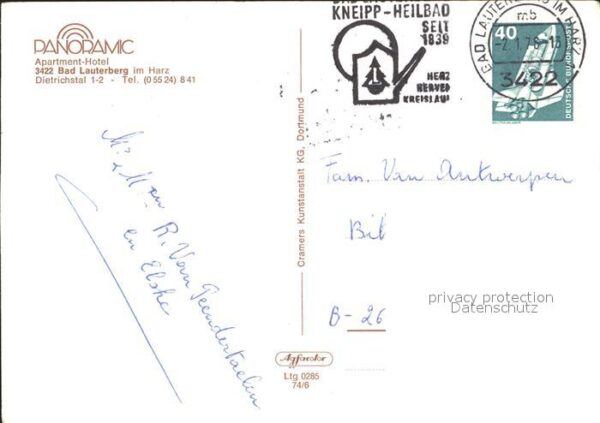 PANORAMIC
Apartment-Hotel
3422 Bad Lauterberg im Harz
Dietrichstal 1-2 - Tel. (0 55 24) 8 41
KNEIPP-HEILBAD
SEIT
1839
HERZ
NERVEN
KREISLAUF
BAD LAUTERBERG IM HARZ
mb
-2.1.76-15
3422
40
DEUTSCHE BUNDESPOST
Cramers Kunstanstalt KG, Dortmund
Mr & Mevr
R. Van Peenderstraelen
en Elske
Fam. Van Antwerpen
Bit
B-26
privacy protection
Datenschutz
Agfacolor
Ltg 0285
74/6